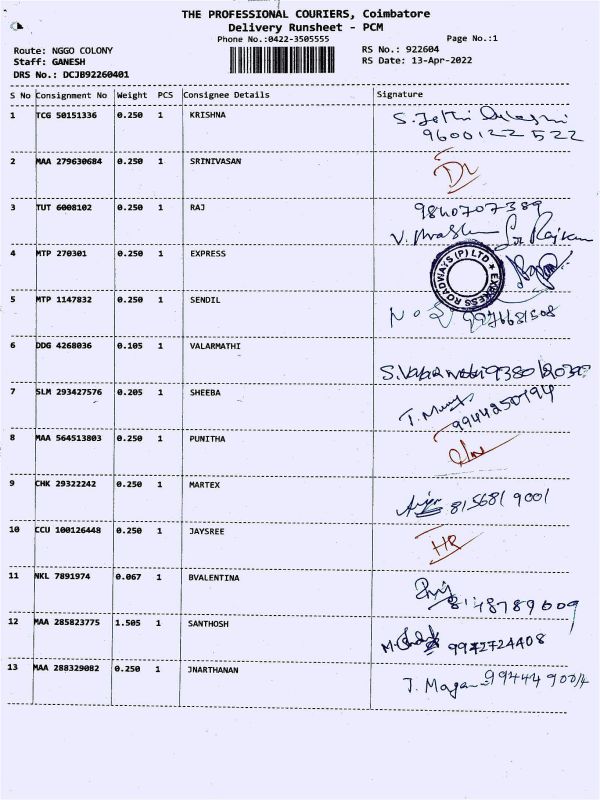 THE PROFESSIONAL COURIERS, Coimbatore
Delivery Runsheet - PCM
Phone No.:0422-3505555
Page No.:1
Route: NGGO COLONY
RS No.: 922604
Staff: GANESH
RS Date: 13-Apr-2022
DRS No.: DCJB92260401
S No Consignment No Weight PCS Consignee Details Signature
1 TCG 50151336 0.250 1 KRISHNA
9600122522
2 MAA 279630684 0.250 1 SRINIVASAN
DL
3 TUT 6008102 0.250 1 RAJ 9840707389
4 MTP 270301 0.250 1 EXPRESS
EXPRESS ROADWAYS (P) LTD
5 MTP 1147832 0.250 1 SENDIL
6 DDG 4268036 0.105 1 VALARMATHI
7 SLM 293427576 0.205 1 SHEEBA
9944250194
8 MAA 564513803 0.250 1 PUNITHA
9 CHK 29322242 0.250 1 MARTEX
8156819001
10 CCU 100126448 0.250 1 JAYSREE
HR
11 NKL 7891974 0.067 1 BVALENTINA
8148789609
12 MAA 285823775 1.505 1 SANTHOSH
9942724408
13 MAA 288329082 0.250 1 JNARTHANAN